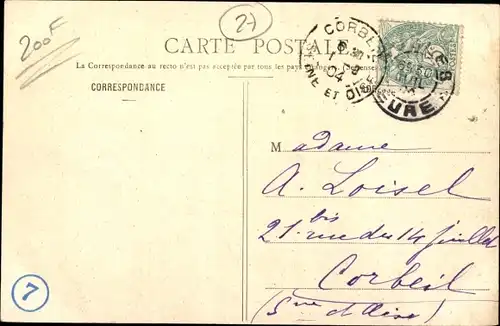 200F
27
CARTE POSTALE
La Correspondance au recto n'est pas acceptée par tous les pays étrangers.
CORRESPONDANCE
CORBEIL
SEINE ET OISE
EURE
M adame
A. Loisel
21 bis rue du 14 juillet
Corbeil
(Sne et Oise)
7